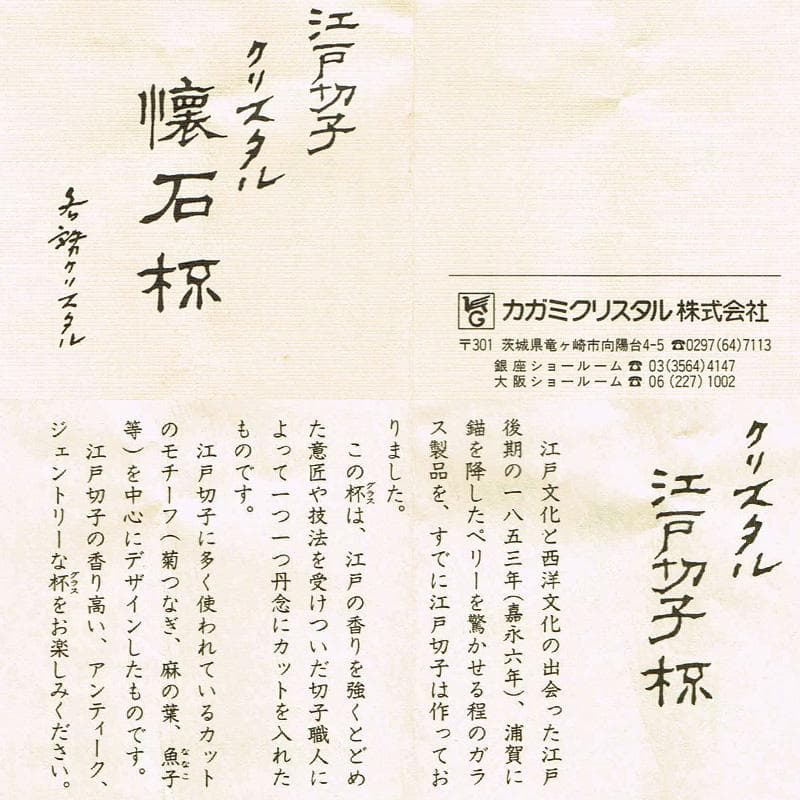 江戸切子
クリスタル
懐石杯
各務クリスタル
カガミクリスタル株式会社
〒301 茨城県竜ヶ崎市向陽台4-5 ☎0297(64)7113
銀座ショールーム ☎ 03(3564)4147
大阪ショールーム ☎ 06 (227) 1002
クリスタル
江戸切子杯
江戸文化と西洋文化の出会った江戸
後期の一八五三年(嘉永六年)、浦賀に
錨を降したペリーを驚かせる程のガラ
ス製品を、すでに江戸切子は作ってお
りました。
この杯グラスは、江戸の香りを強くとどめ
た意匠や技法を受けついだ切子職人に
よって一つ一つ丹念にカットを入れた
ものです。
江戸切子に多く使われているカット
のモチーフ(菊つなぎ、麻の葉、魚子ななこ
等)を中心にデザインしたものです。
江戸切子の香り高い、アンティーク、
ジェントリーな杯グラスをお楽しみください。